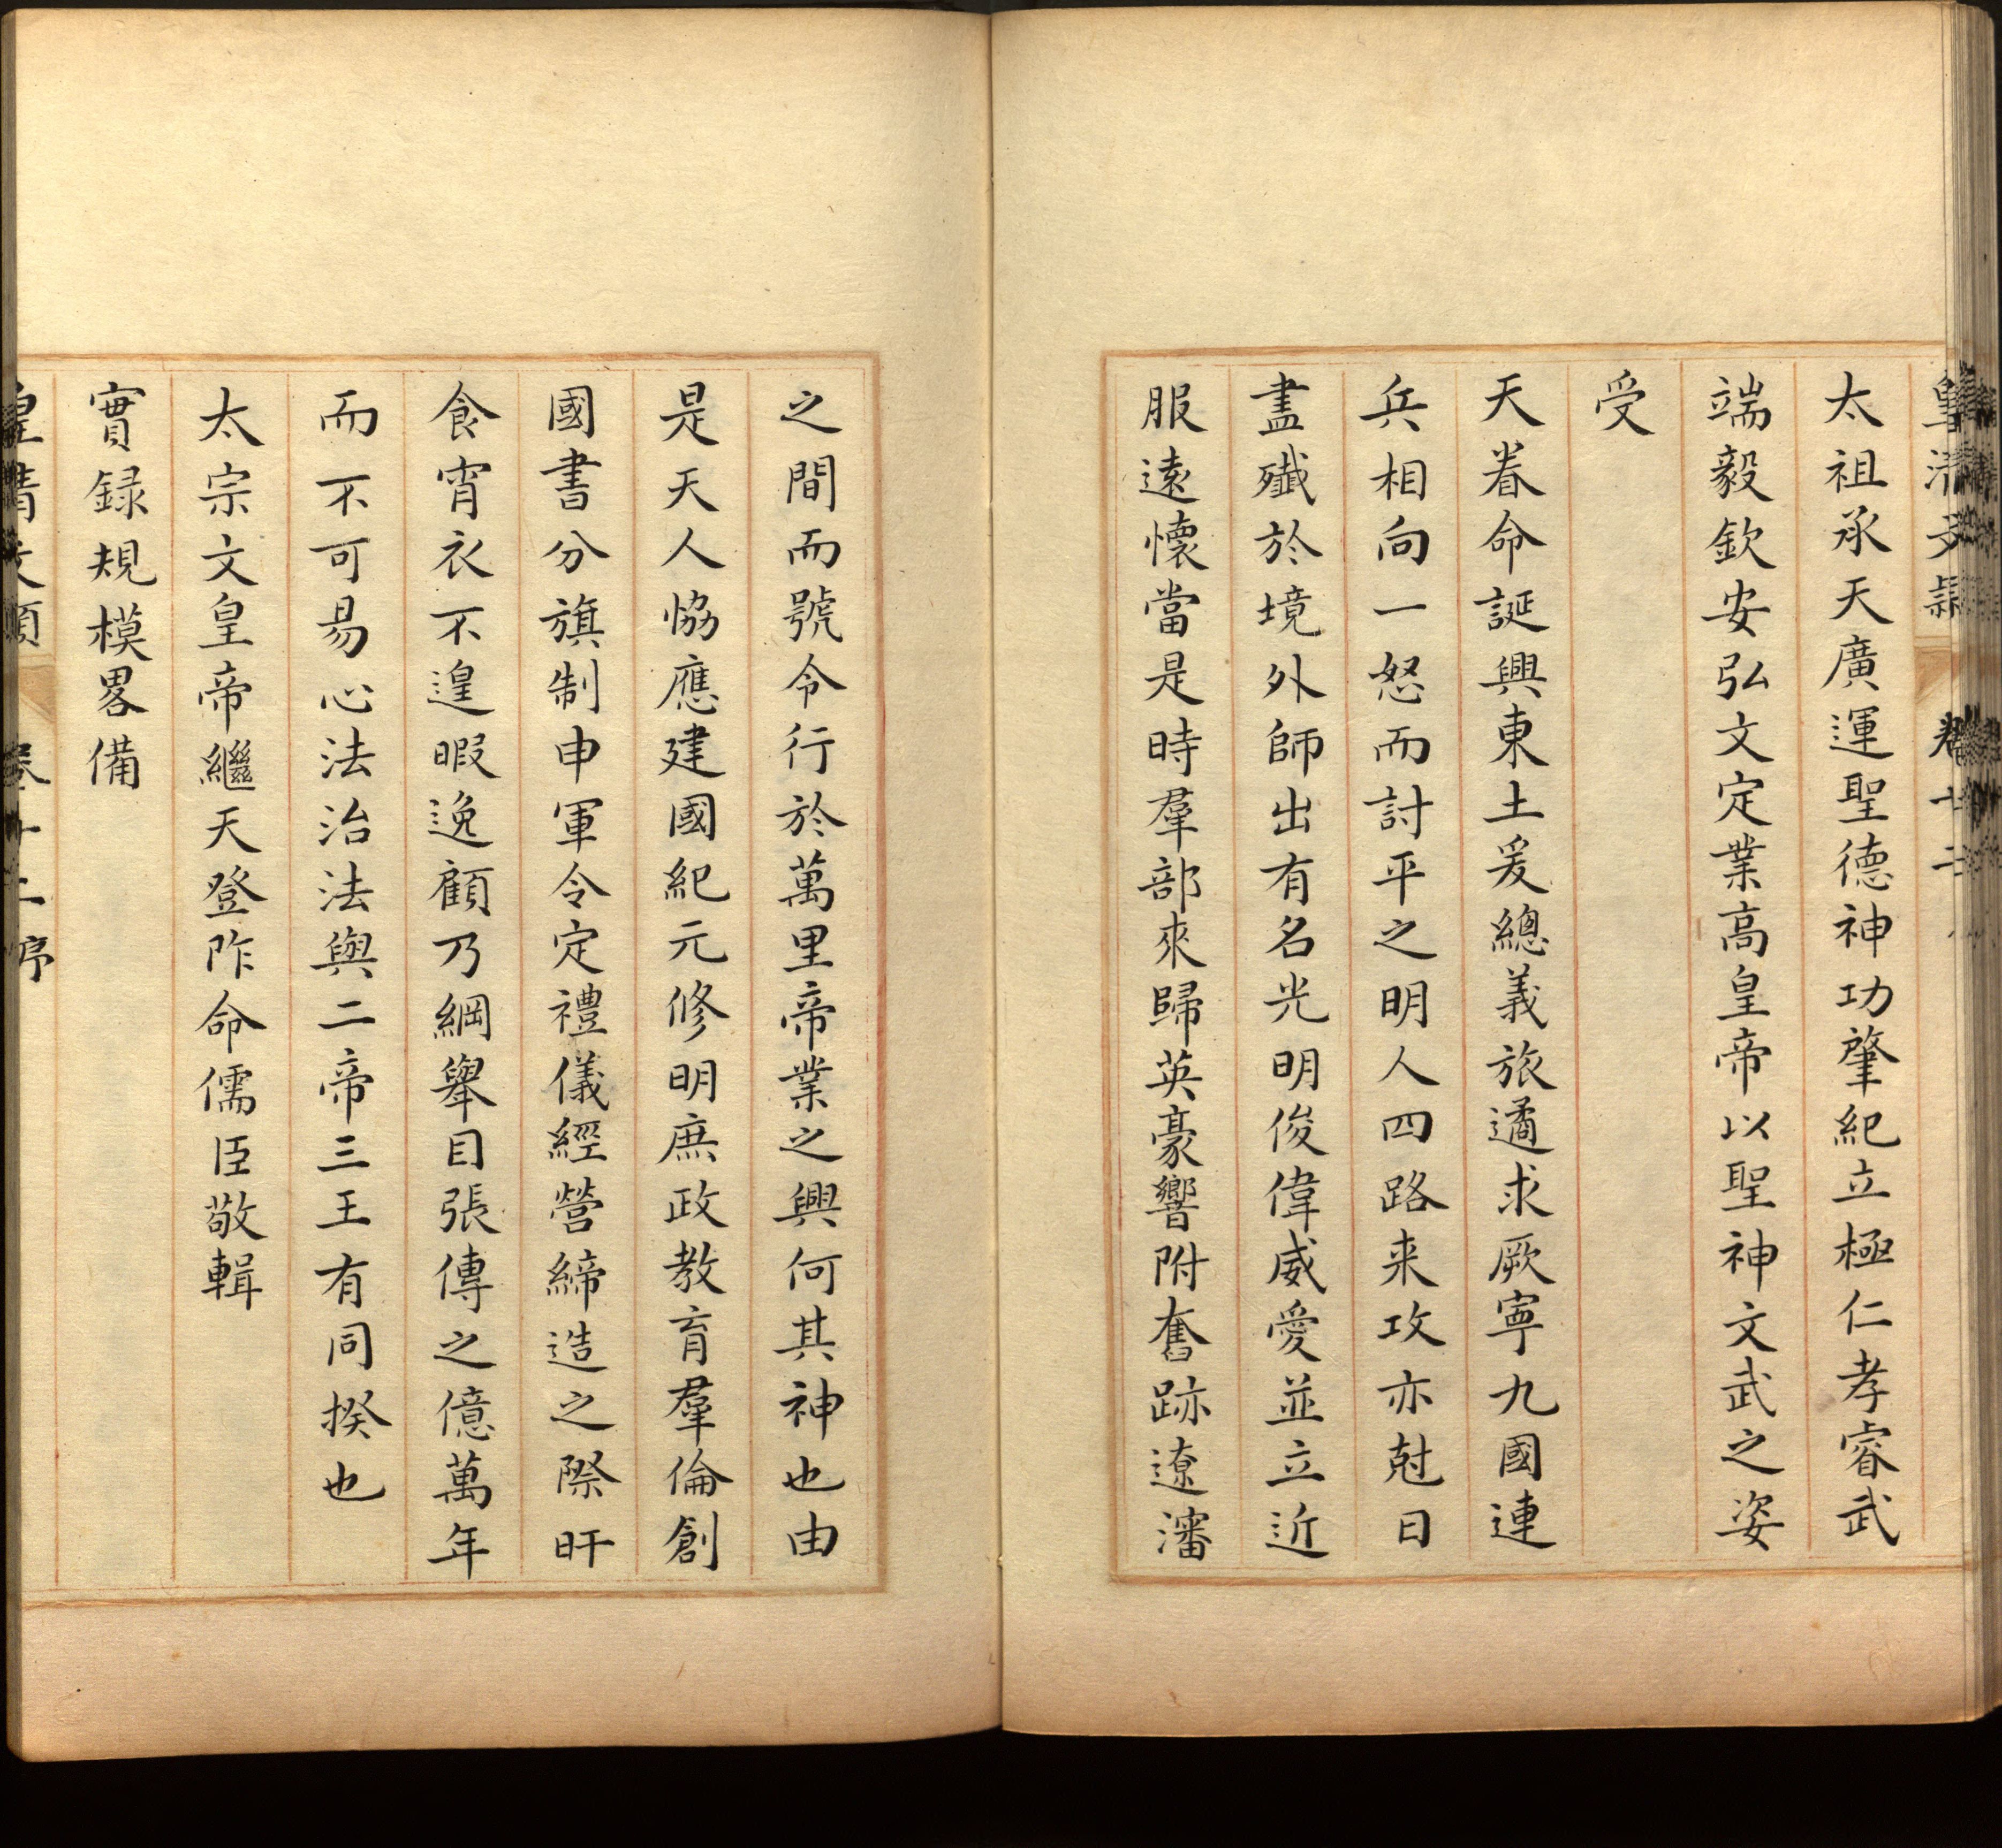 皇清文穎 卷十二
太祖承天廣運聖德神功肇紀立極仁孝睿武
端毅欽安弘文定業高皇帝以聖神文武之姿
受
天眷命誕興東土爰總義旅遹求厥寧九國連
兵相向一怒而討平之明人四路来攻亦尅日
盡殲於境外師出有名光明俊偉威愛並立近
服遠懷當是時羣部來歸英豪響附奮跡遼瀋
之間而號令行於萬里帝業之興何其神也由
是天人恊應建國紀元修明庶政教育羣倫創
國書分旗制申軍令定禮儀經營締造之際旰
食宵衣不遑暇逸顧乃綱舉目張傳之億萬年
而不可易心法治法與二帝三王有同揆也
太宗文皇帝繼天登阼命儒臣敬輯
實録規模畧備
皇清文穎 卷十二 序